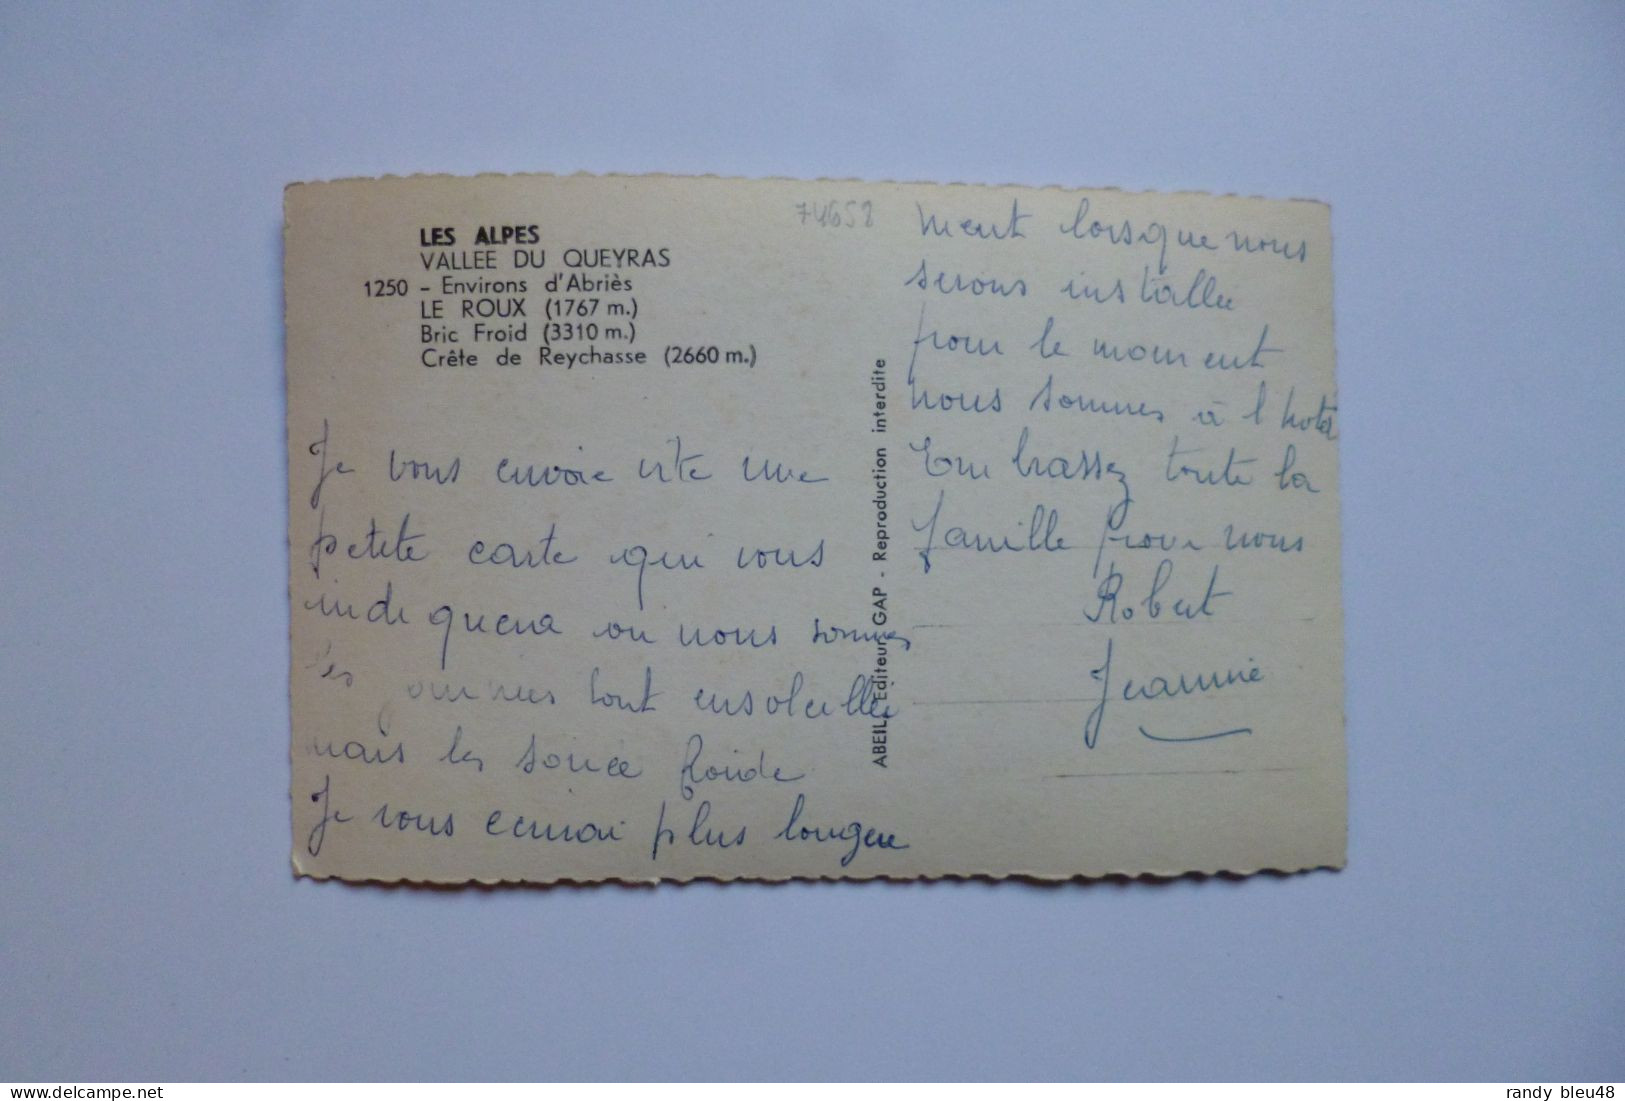 LES ALPES
VALLEE DU QUEYRAS
1250 - Environs d'Abriès
LE ROUX (1767 m.)
Bric Froid (3310 m.)
Crête de Reychasse (2660 m.)
74658
Je vous envoie vite une
petite carte qui vous
indiquera ou nous sommes
les journées sont ensoleillée
mais les soirée froide
Je vous ecrirai plus longue
ABEIL, Editeur, GAP - Reproduction interdite
ment lorsque nous
serons installée
pour le moment
nous sommes à l'hotel
Embrassez toute la
famille pour nous
Robert
Jeannine
randy bleu48